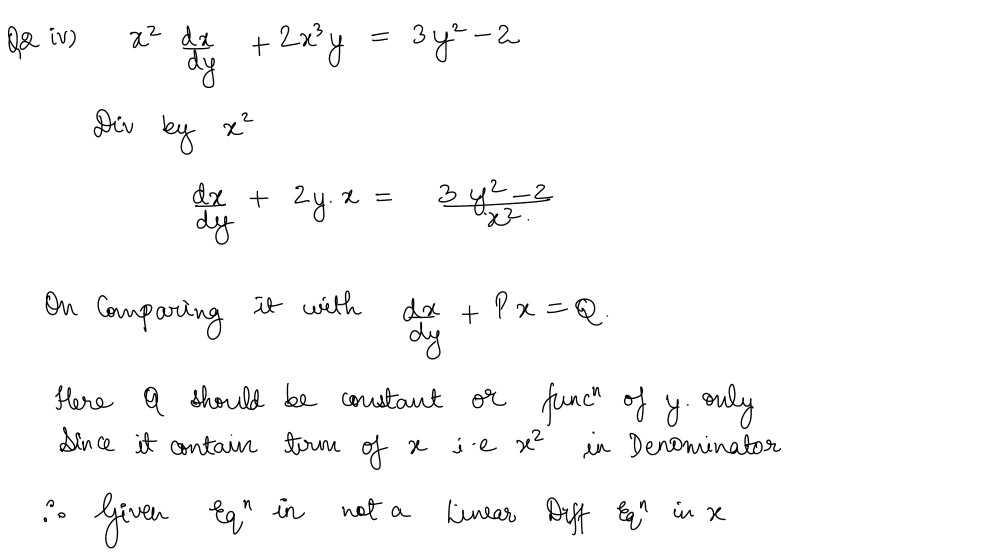 Q2 iv) x² dx/dy + 2x³y = 3y² - 2
Div by x²
dx/dy + 2y. x = 3y² - 2 / x².
On Comparing it with dx/dy + P x = Q.
Here Q should be constant or funcⁿ of y. only
Since it contain term of x i.e x² in Denominator
∴ Given Eqⁿ in not a Linear Diff Eqⁿ in x